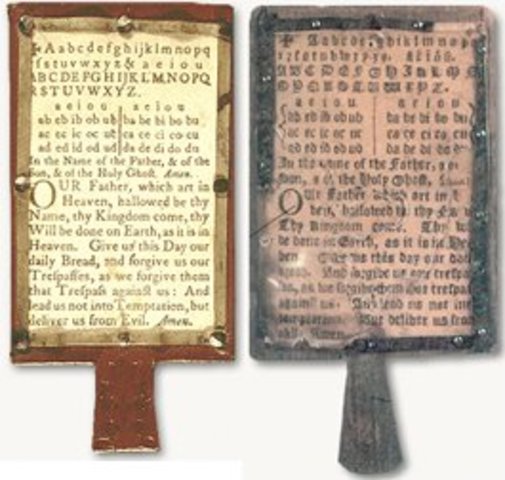 ✠ Aabcdefghijklmnopq
rſstuvwxyz& a e i o u
ABCDEFGHIJKLMNOPQ
RSTUVWXYZ.
a e i o u a e i o u
ab eb ib ob ub ba be bi bo bu
ac ec ic oc uc ca ce ci co cu
ad ed id od ud da de di do du
In the Name of the Father, & of the
Son, & of the Holy Ghoſt. Amen.
OUR Father, which art in
Heaven, hallowed be thy
Name, thy Kingdom come, thy
Will be done on Earth, as it is in
Heaven. Give us this Day our
daily Bread, and forgive us our
Treſpaſſes, as we forgive them
that Treſpaſs againſt us: And
lead us not into Temptation, but
deliver us from Evil. Amen.
✠ Aabcdefghiklmnop
a e i o u a e i o u
ab eb ib ob ub ba be bi bo bu
ac ec ic oc uc ca ce ci co cu
ad ed id od ud da de di do du
In the of the Father,
of the Holy Ghoſt,
Our Father which art in
hallowed be thy
Thy Kingdom come. Thy
be done in Earth, as it is in
us this day our
bread. And forgive us our
as we forgive
againſt us: And lead us not
But deliver us from
Amen.